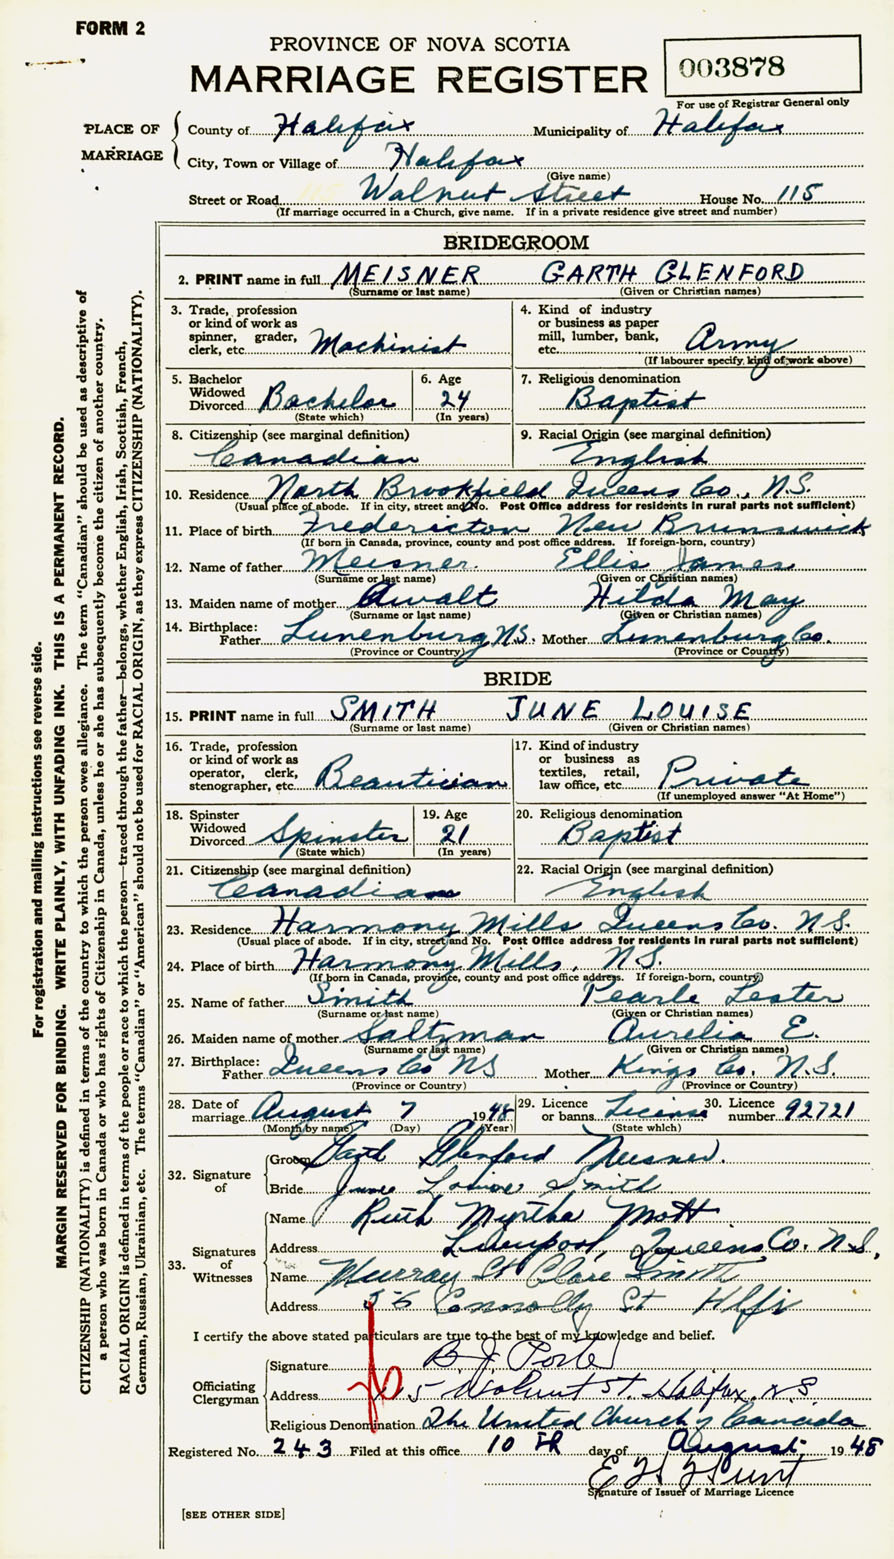 FORM 2
PROVINCE OF NOVA SCOTIA
MARRIAGE REGISTER
003878
For use of Registrar General only
PLACE OF MARRIAGE
County of Halifax Municipality of Halifax
City, Town or Village of Halifax
(Give name)
Street or Road Walnut Street House No. 115
(If marriage occurred in a Church, give name. If in a private residence give street and number)
BRIDEGROOM
2. PRINT name in full MEISNER GARTH GLENFORD
(Surname or last name) (Given or Christian names)
3. Trade, profession or kind of work as spinner, grader, clerk, etc. Machinist
4. Kind of industry or business as paper mill, lumber, bank, etc. Army
(If labourer specify kind of work above)
5. Bachelor Widowed Divorced Bachelor
(State which)
6. Age 24
(In years)
7. Religious denomination
Baptist
8. Citizenship (see marginal definition)
Canadian
9. Racial Origin (see marginal definition)
English
10. Residence North Brookfield Queens Co., N.S.
(Usual place of abode. If in city, street and No. Post Office address for residents in rural parts not sufficient)
11. Place of birth Fredericton New Brunswick
(If born in Canada, province, county and post office address. If foreign-born, country)
12. Name of father Meisner. Ellis James
(Surname or last name) (Given or Christian names)
13. Maiden name of mother Awalt Hilda May
(Surname or last name) (Given or Christian names)
14. Birthplace: Father Lunenburg, N.S. Mother Lunenburg Co.
(Province or Country) (Province or Country)
BRIDE
15. PRINT name in full SMITH JUNE LOUISE
(Surname or last name) (Given or Christian names)
16. Trade, profession or kind of work as operator, clerk, stenographer, etc. Beautician
17. Kind of industry or business as textiles, retail, law office, etc. Private
(If unemployed answer "At Home")
18. Spinster Widowed Divorced Spinster
(State which)
19. Age 21
(In years)
20. Religious denomination
Baptist
21. Citizenship (see marginal definition)
Canadian
22. Racial Origin (see marginal definition)
English
23. Residence Harmony Mills Queens Co. N.S.
(Usual place of abode. If in city, street and No. Post Office address for residents in rural parts not sufficient)
24. Place of birth Harmony Mills, N.S.
(If born in Canada, province, county and post office address. If foreign-born, country)
25. Name of father Smith Pearle Lester
(Surname or last name) (Given or Christian names)
26. Maiden name of mother Saltzman Aurelia E.
(Surname or last name) (Given or Christian names)
27. Birthplace: Father Queens Co NS Mother Kings Co. N.S.
(Province or Country) (Province or Country)
28. Date of marriage August 7 1948
(Month by name) (Day) (Year)
29. Licence or banns License
(State which)
30. Licence number 92721
32. Signature of
Groom Garth Glenford Meisner.
Bride June Louise Smith
33. Signatures of Witnesses
Name Ruth Myrtha Mott
Address Liverpool, Queens Co. N.S.
Name Murray St Clare Smith
Address 56 Connolly St Hlfx
I certify the above stated particulars are true to the best of my knowledge and belief.
Officiating Clergyman
Signature B J Porter
Address 115 Walnut St. Halifax, N S
Religious Denomination The United Church of Canada
Registered No. 243 Filed at this office 10 th day of August 1948
E H Hunt
Signature of Issuer of Marriage Licence
[SEE OTHER SIDE]
For registration and mailing instructions see reverse side.
MARGIN RESERVED FOR BINDING. WRITE PLAINLY, WITH UNFADING INK. THIS IS A PERMANENT RECORD.
CITIZENSHIP (NATIONALITY) is defined in terms of the country to which the person owes allegiance. The term "Canadian" should be used as descriptive of
a person who was born in Canada or who has rights of Citizenship in Canada, unless he or she has subsequently become the citizen of another country.
RACIAL ORIGIN is defined in terms of the people or race to which the person—traced through the father—belongs, whether English, Irish, Scottish, French,
German, Russian, Ukrainian, etc. The terms "Canadian" or "American" should not be used for RACIAL ORIGIN, as they express CITIZENSHIP (NATIONALITY).